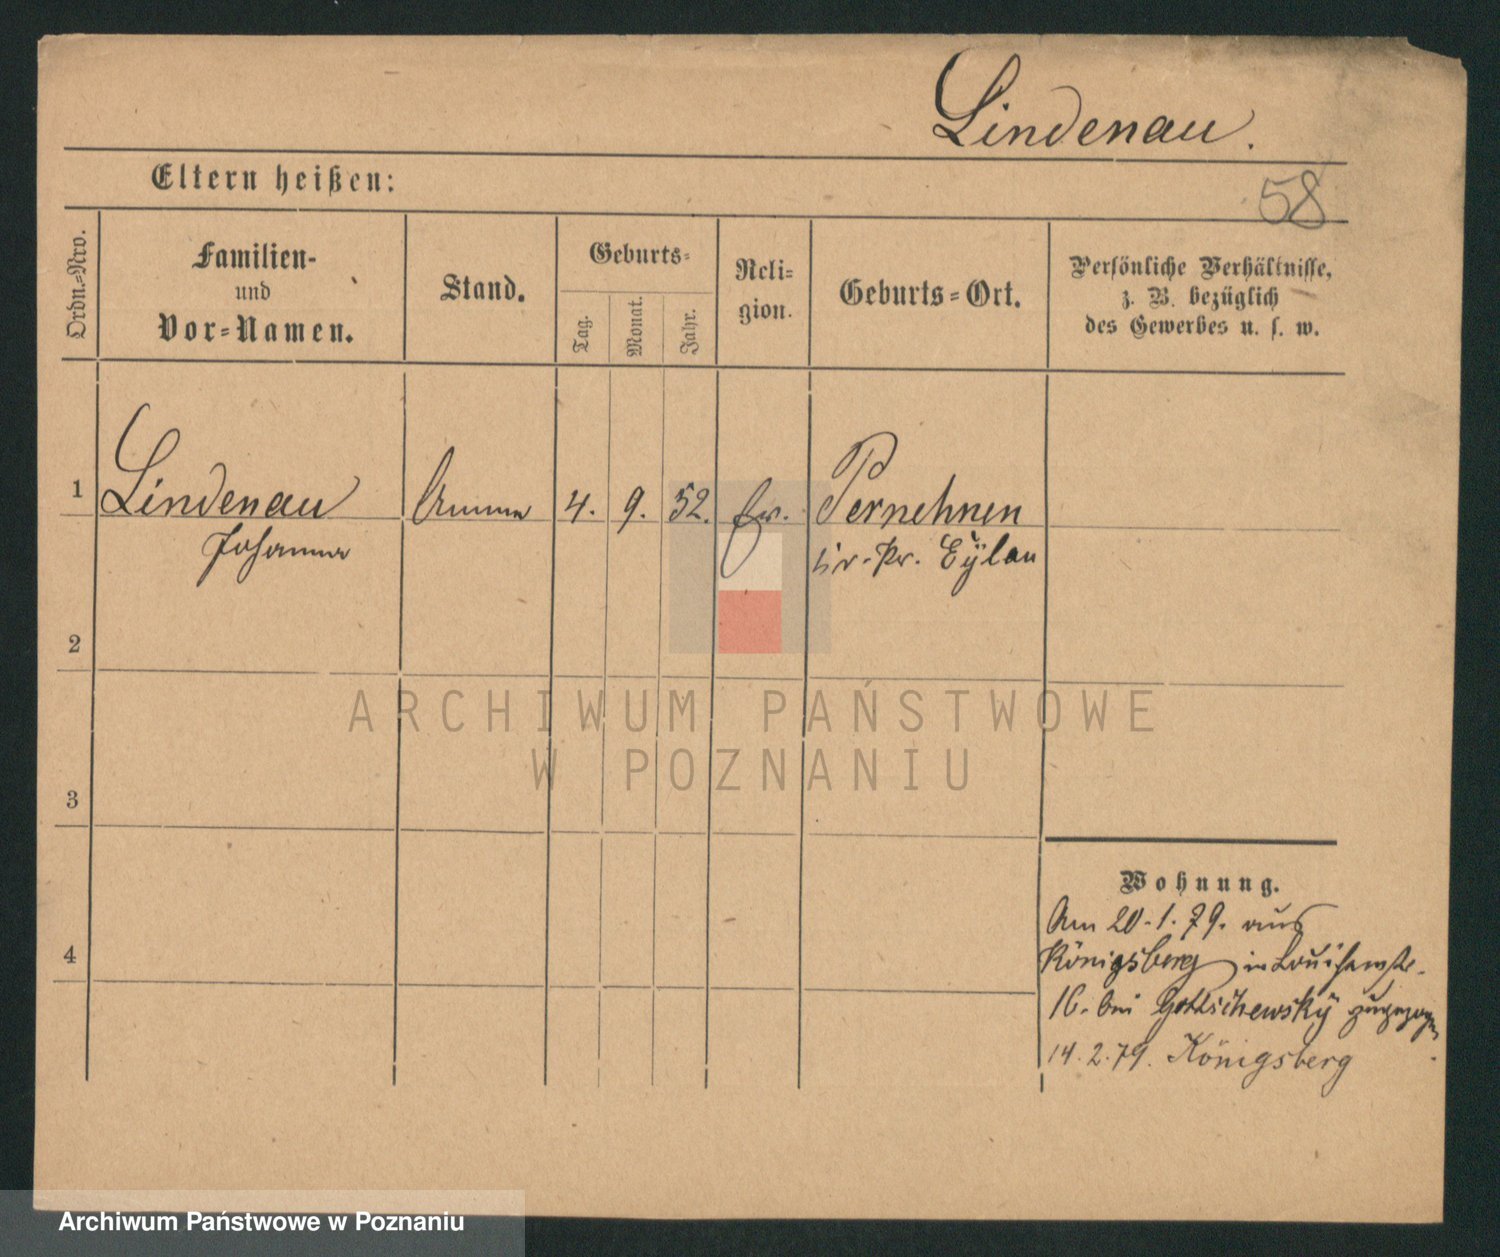 Lindenau.
Eltern heißen:
58
Ordn.-Nro.
Familien-
und
Vor-Namen.
Stand.
Geburts-
Tag.
Monat.
Jahr.
Reli-
gion.
Geburts-Ort.
Persönliche Verhältnisse,
z. B. bezüglich
des Gewerbes u. s. w.
1
Lindenau
Johanna
Amme
4. 9. 52.
ev.
Pernehnen
Kr. Pr. Eÿlau
2
3
4
Wohnung.
Am 20.1.79. aus
Königsberg in Louisenstr.
16. bei Gottschewskÿ zugezogen
14.2.79. Königsberg
ARCHIWUM PAŃSTWOWE
W POZNANIU
Archiwum Państwowe w Poznaniu